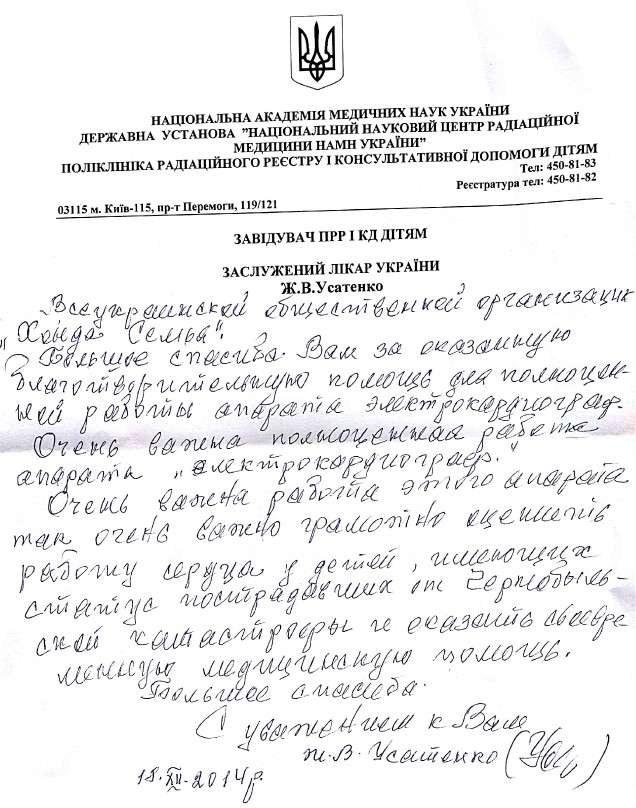 НАЦІОНАЛЬНА АКАДЕМІЯ МЕДИЧНИХ НАУК УКРАЇНИ
ДЕРЖАВНА УСТАНОВА "НАЦІОНАЛЬНИЙ НАУКОВИЙ ЦЕНТР РАДІАЦІЙНОЇ
МЕДИЦИНИ НАМН УКРАЇНИ"
ПОЛІКЛІНІКА РАДІАЦІЙНОГО РЕЄСТРУ І КОНСУЛЬТАТИВНОЇ ДОПОМОГИ ДІТЯМ
Тел: 450-81-83
Реєстратура тел: 450-81-82
03115 м. Київ-115, пр-т Перемоги, 119/121
ЗАВІДУВАЧ ПРР І КД ДІТЯМ
ЗАСЛУЖЕНИЙ ЛІКАР УКРАЇНИ
Ж.В.Усатенко
Всеукраинской общественной организации
"Хонда Семья".
Большое спасиба Вам за оказанную
благотворительную помощь для полноцен-
ной работы апарата электрокардиограф.
Очень важна полноценная работа
апарата "электрокардиограф."
Очень важна работа этого апарата
так очень важно грамотно оценить
работу сердца у детей, имеющих
статус пострадавших от Чернобыль-
ской катастрофы и оказать своевре-
менную медицинскую помощь.
Большое спасиба.
С уважением к Вам
Ж.В. Усатенко
18.XII.2014р.